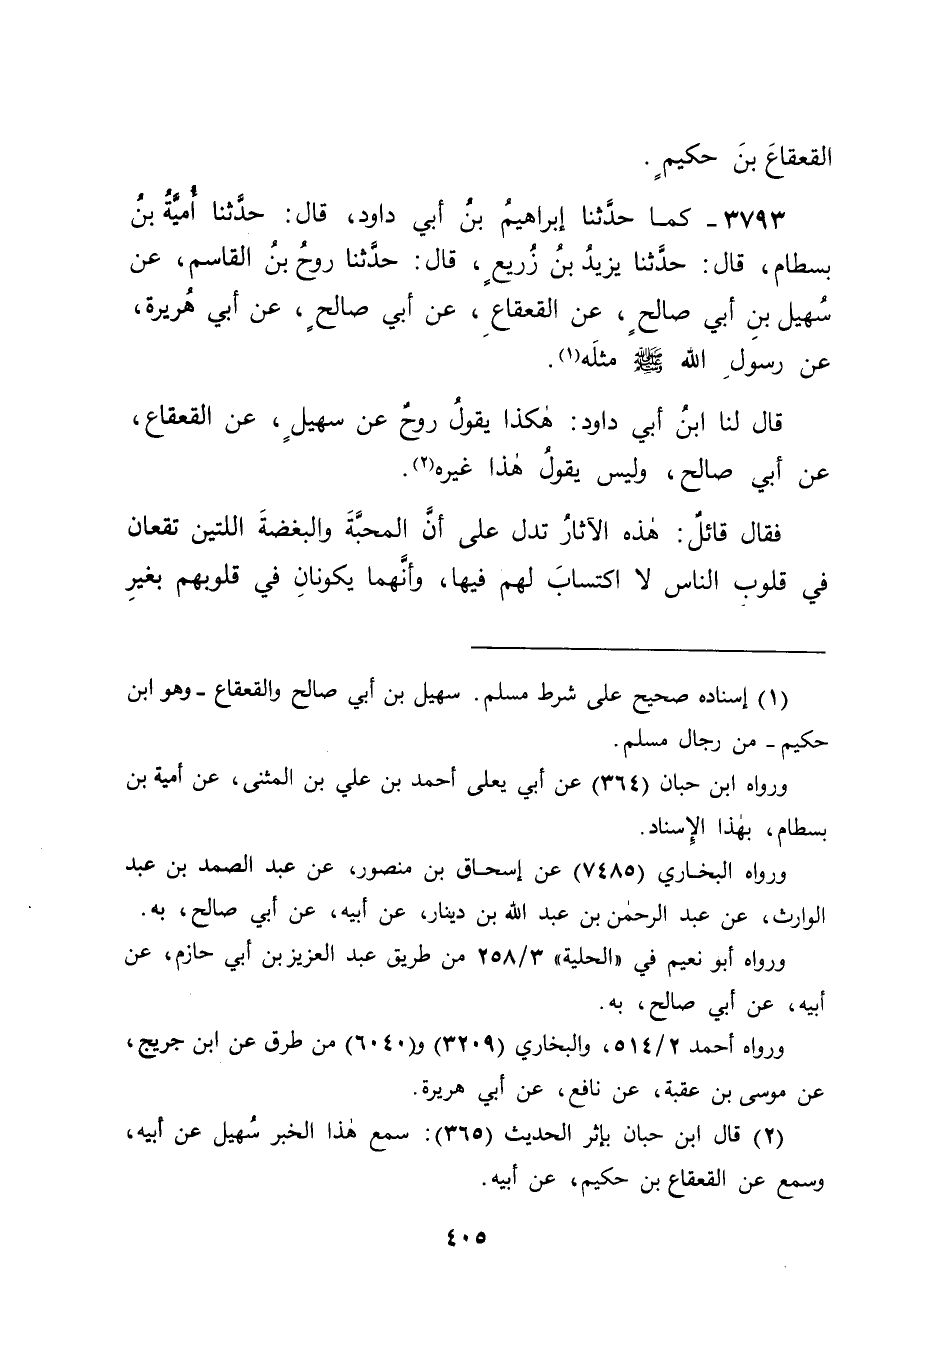 القعقاعَ بنَ حكيمٍ.
٣٧٩٣ـ كما حدَّثنا إبراهيمُ بنُ أبي داود، قال: حدَّثنا أُميَّةُ بنُ
بسطام، قال: حدَّثنا يزيدُ بنُ زُريعٍ، قال: حدَّثنا روحُ بنُ القاسم، عن
سُهيل بنِ أبي صالحٍ، عن القعقاعِ، عن أبي صالحٍ، عن أبي هُريرة،
عن رسولِ الله ﷺ مثلَه(١).
قال لنا ابنُ أبي داود: هٰكذا يقولُ روحٌ عن سهيلٍ، عن القعقاع،
عن أبي صالح، وليس يقولُ هٰذا غيره(٢).
فقال قائلٌ: هٰذه الآثارُ تدل على أنَّ المحبَّةَ والبغضةَ اللتين تقعان
في قلوبِ الناس لا اكتسابَ لهم فيها، وأنَّهما يكونانِ في قلوبهم بغيرِ
(١) إسناده صحيح على شرط مسلم. سهيل بن أبي صالح والقعقاع ـ وهو ابن
حكيم ـ من رجال مسلم.
ورواه ابن حبان (٣٦٤) عن أبي يعلى أحمد بن علي بن المثنى، عن أمية بن
بسطام، بهٰذا الإسناد.
ورواه البخاري (٧٤٨٥) عن إسحاق بن منصور، عن عبد الصمد بن عبد
الوارث، عن عبد الرحمٰن بن عبد الله بن دينار، عن أبيه، عن أبي صالح، به.
ورواه أبو نعيم في «الحلية» ٢٥٨/٣ من طريق عبد العزيز بن أبي حازم، عن
أبيه، عن أبي صالح، به.
ورواه أحمد ٥١٤/٢، والبخاري (٣٢٠٩) و(٦٠٤٠) من طرق عن ابن جريج،
عن موسى بن عقبة، عن نافع، عن أبي هريرة.
(٢) قال ابن حبان بإثر الحديث (٣٦٥): سمع هٰذا الخبر سُهيل عن أبيه،
وسمع عن القعقاع بن حكيم، عن أبيه.
٤٠٥